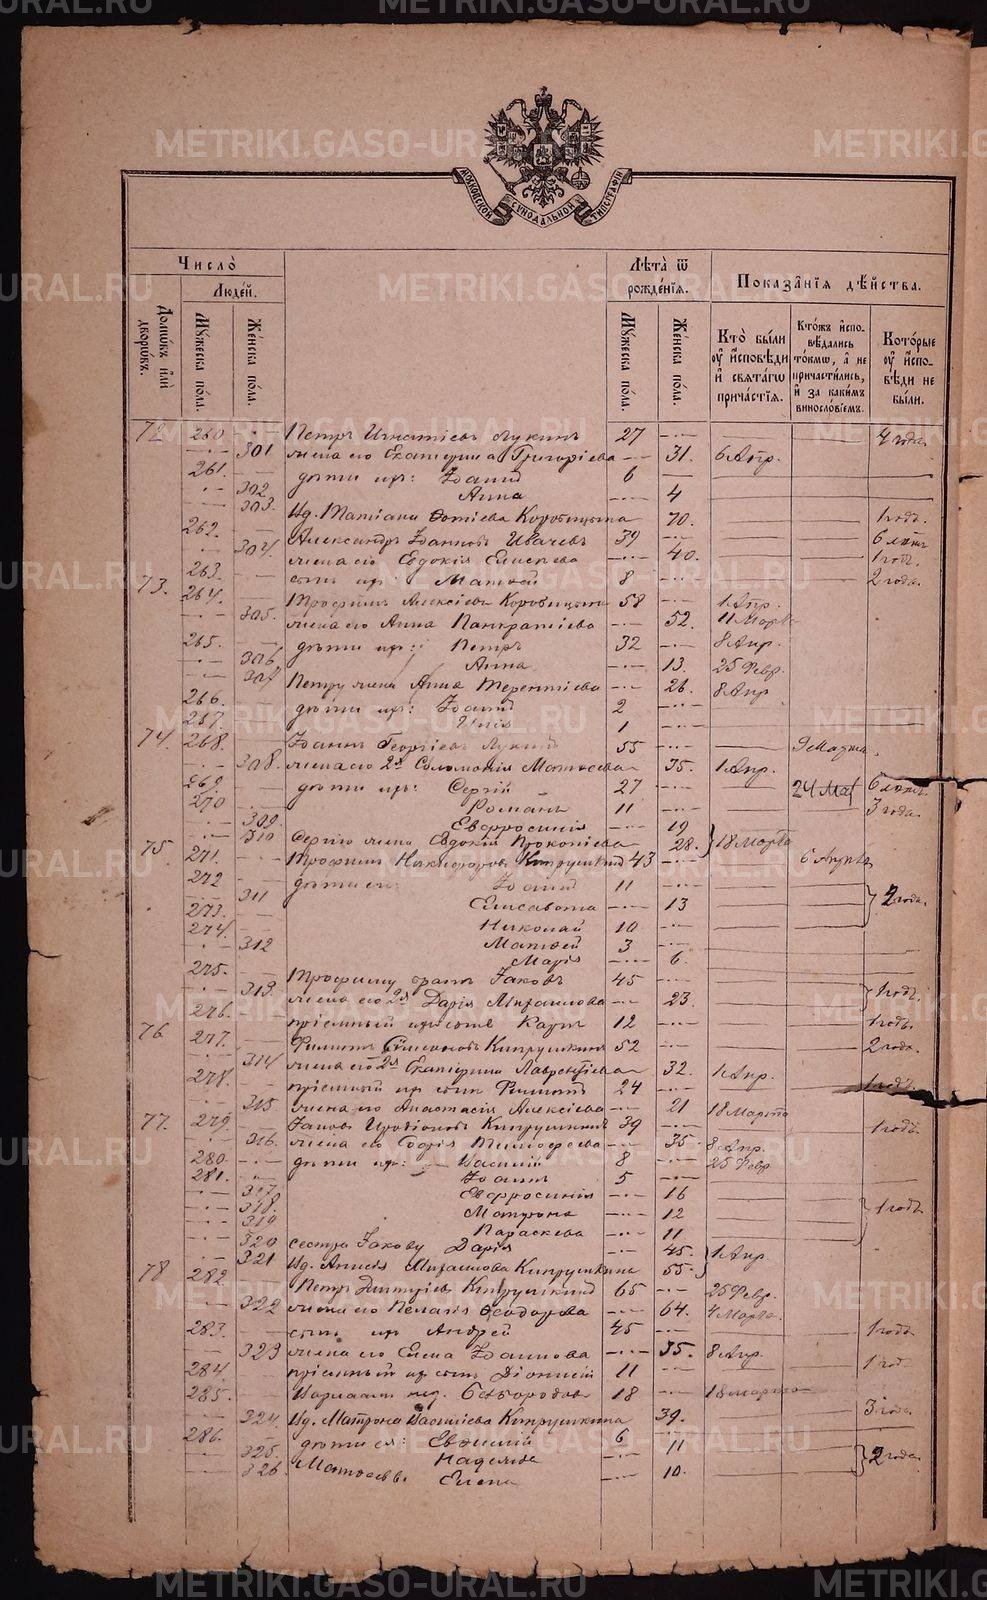 METRIKI.GASO-URAL.RU
МОСКОВСКОЙ СУНОДАЛЬНОЙ ТИПОГРАФІИ
Число̀
Людéй.
Домѡвъ и҆лѝ дворѡвъ.
Мꙋжеска пола.
Жéнска пóла.
Лѣта̀ ѿ рождéнїѧ.
Мꙋжеска пола.
Жéнска пóла.
Показа̑нїѧ дѣ́йства.
Кто̀ бы́ли
оу҆ и҆́сповѣди
и҆ свѧта́гѡ
прича́стїѧ.
Кто́жъ и҆спо-
вѣдались
то́кмѡ, а҆ не
причасти́лись,
и҆ за каки́мъ
винослóвїемъ.
Кото́рые
оу҆ и҆́спо-
вѣди не
бы́ли.
72 260 Петръ Игнатіевъ Лукинъ 27 4 года
301 жена его Екатерина Григоріева 31. 6 Апр.
261. дѣти ихъ: Іоаннъ 6
302. Анна 4
303. Вд. Татіана Фотіева Коробицына 70. 1 годъ.
262. Александръ Іоанновъ Ивачевъ 39 6 лѣтъ
304. жена его Евдокія Елисѣева 40. 1 годъ.
263. сынъ ихъ: Матѳей 8 2 года.
73. 264. Трофимъ Алексіевъ Коробицынъ 58 1 Апр.
305. жена его Анна Панкратіева 52. 11 Марта
265. дѣти ихъ: Петръ 32 8 Апр.
306 Анна 13. 25 Февр.
307 Петру жена Анна Терентіева 26. 8 Апр
266. дѣти ихъ: Іоаннъ 2
267. 1
74. 268. Іоаннъ Георгіевъ Лукинъ 55 9 Марта.
308. жена его 2я Соломонія Матѳеева 35. 1 Апр.
269. дѣти ихъ: Сергій 27 24 Мар 6 лѣтъ.
270 Романъ 11 3 года.
309. Евфросинія 19
310 Сергію жена Евдокія Прокопіева 28. 18 Марта
75. 271. Трофимъ Никифоровъ Кипрушкинъ 43 6 Апрѣля
272 дѣти его: Іоаннъ 11
311 Елисавета 13 2 года.
273. Николай 10
274. Матѳей 3
312 Марія 6.
275. Трофиму братъ Іаковъ 45
313 жена его 2я Дарія Михаилова 23. 1 годъ.
276. пріемный ихъ сынъ Карпъ 12 1 годъ.
76 277. Филиппъ Симеоновъ Кипрушкинъ 52 2 года.
314 жена его 2я Екатерина Лаврентіева 32. 1 Апр.
278. пріемный ихъ сынъ Филиппъ 24 1 годъ.
315 жена его Анастасія Алексіева 21 18 Марта
77. 279. Іаковъ Кипрушкинъ 39 1 годъ.
316. жена его Софія Тимофеева 35. 8 Апр.
280. дѣти ихъ: Василій 8 25 Февр
281. Іоаннъ 5
317 Евфросинія 16
318. Матрона 12 1 годъ
319 Параскева 11
320 сестра Іакову Дарія 45. 1 Апр.
321 Вд. Анисія Михаилова Кипрушкина 55.
78 282 Петръ Димитріевъ Кипрушкинъ 65 25 Февр.
322 жена его Пелагія Ѳеодорова 64. 4 Марта.
283. сынъ ихъ Андрей 45 1 годъ
323 жена его Елена Іоаннова 35. 8 Апр.
284. пріемный ихъ сынъ Діонисій 11 1 год.
285. Варлаамъ 18 18 марта
324. Вд. Матрона Василіева Кипрушкина 39. 3 года.
286. дѣти ея: Евѳимій 6
325. Надежда 11 2 года.
326. Матѳеевы Елена 10.